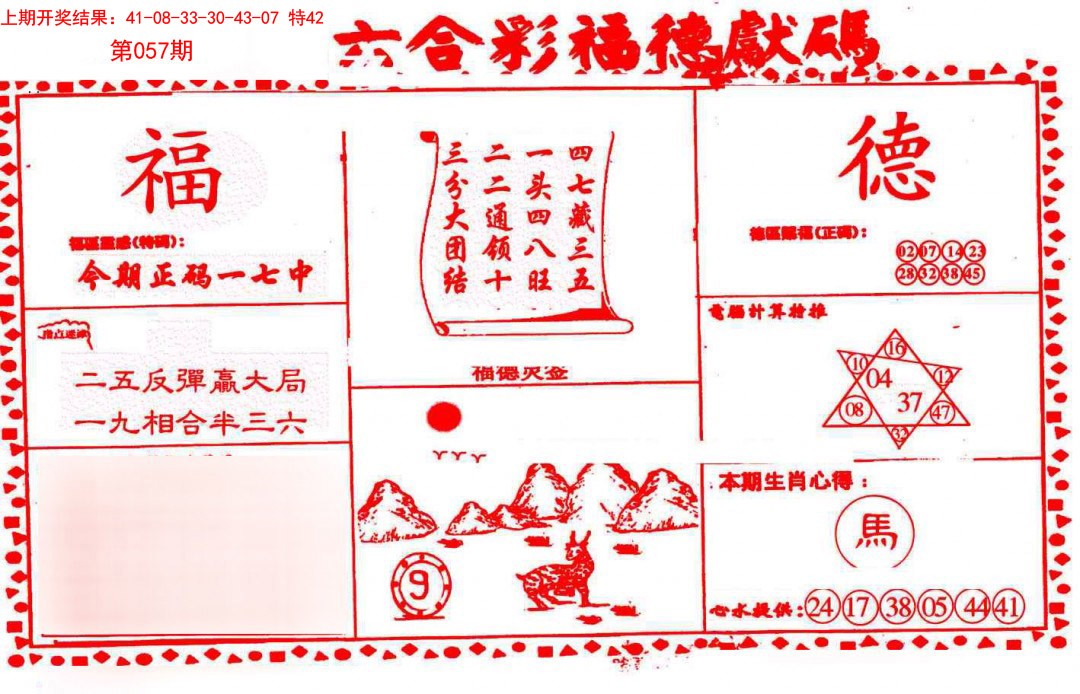 上期开奖结果：41-08-33-30-43-07 特42
第057期
六合彩福德獻碼
福
福區靈感(特碼)：
今期正码一七中
二五反彈贏大局
一九相合半三六
四七藏三五
一头四八旺
二二通领十
三分大团结
福德灵签
9
德
德區賜福(正碼)：
02 07 14 23
28 32 38 45
電腦計算檢推
16
10 04 12
08 37 47
32
本期生肖心得：
馬
心水提供：24 17 38 05 44 41